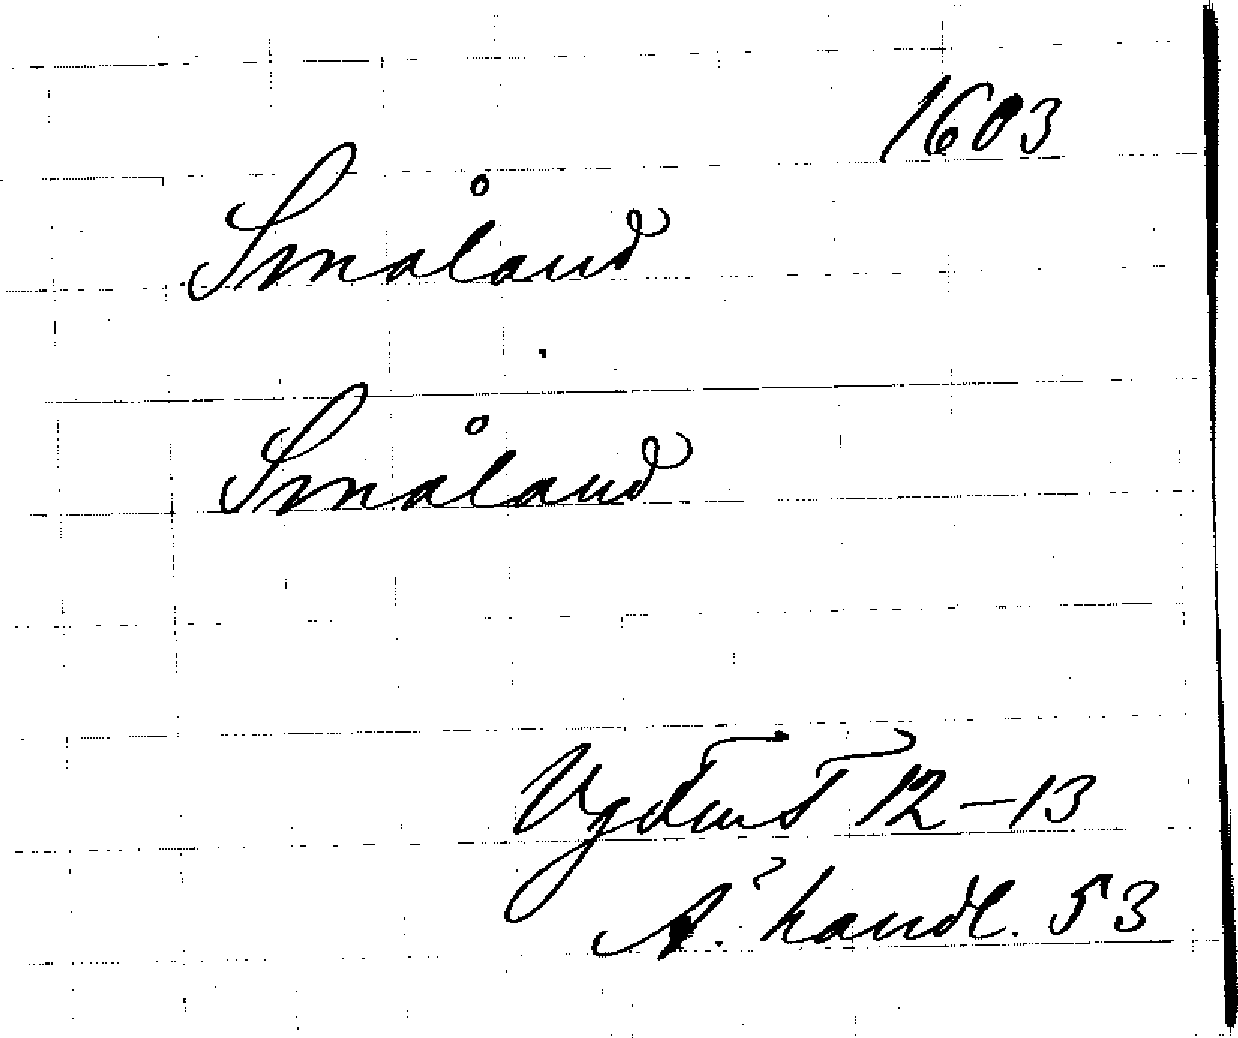 1603
Småland
Småland
12-13
Ä. handl. 53